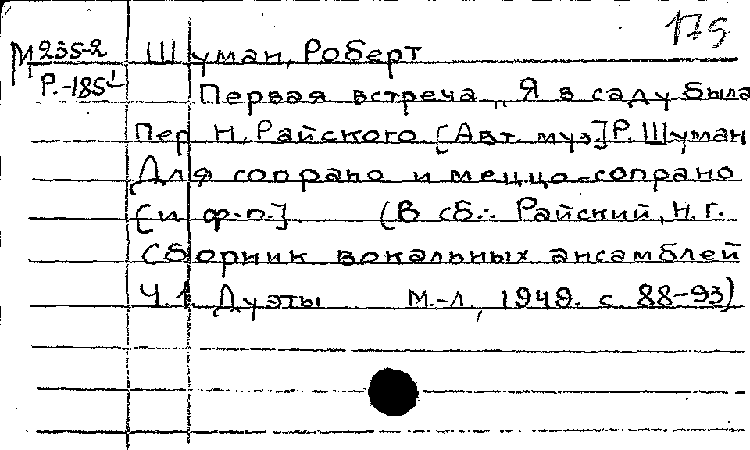 175
М 235-2 Шуман, Роберт
Р.-185¹ Первая встреча „Я в саду была
Пер Н. Райского [Авт муз.] Р. Шуман
Для сопрано и меццо-сопрано
[и ф-п.] (В сб.: Райский, Н. Г.
Сборник вокальных ансамблей
Ч. 1 Дуэты М.-Л, 1949. с. 88-93)